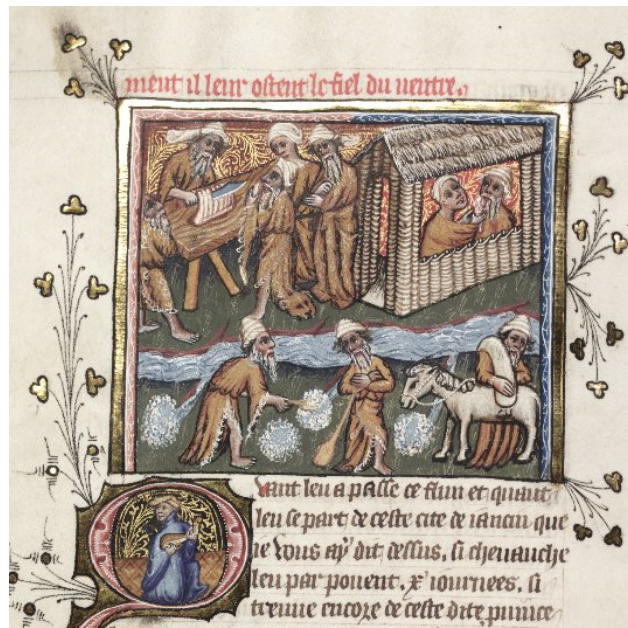 ment il leur ostent le fiel du ventre,
Quant leu a passe ce flun et quant
leu se part de ceste cite de iancin que
ie vous ay dit dessus, si cheuauche
leu par ponent. x. iournees, si
treuue encore de ceste dite prouince